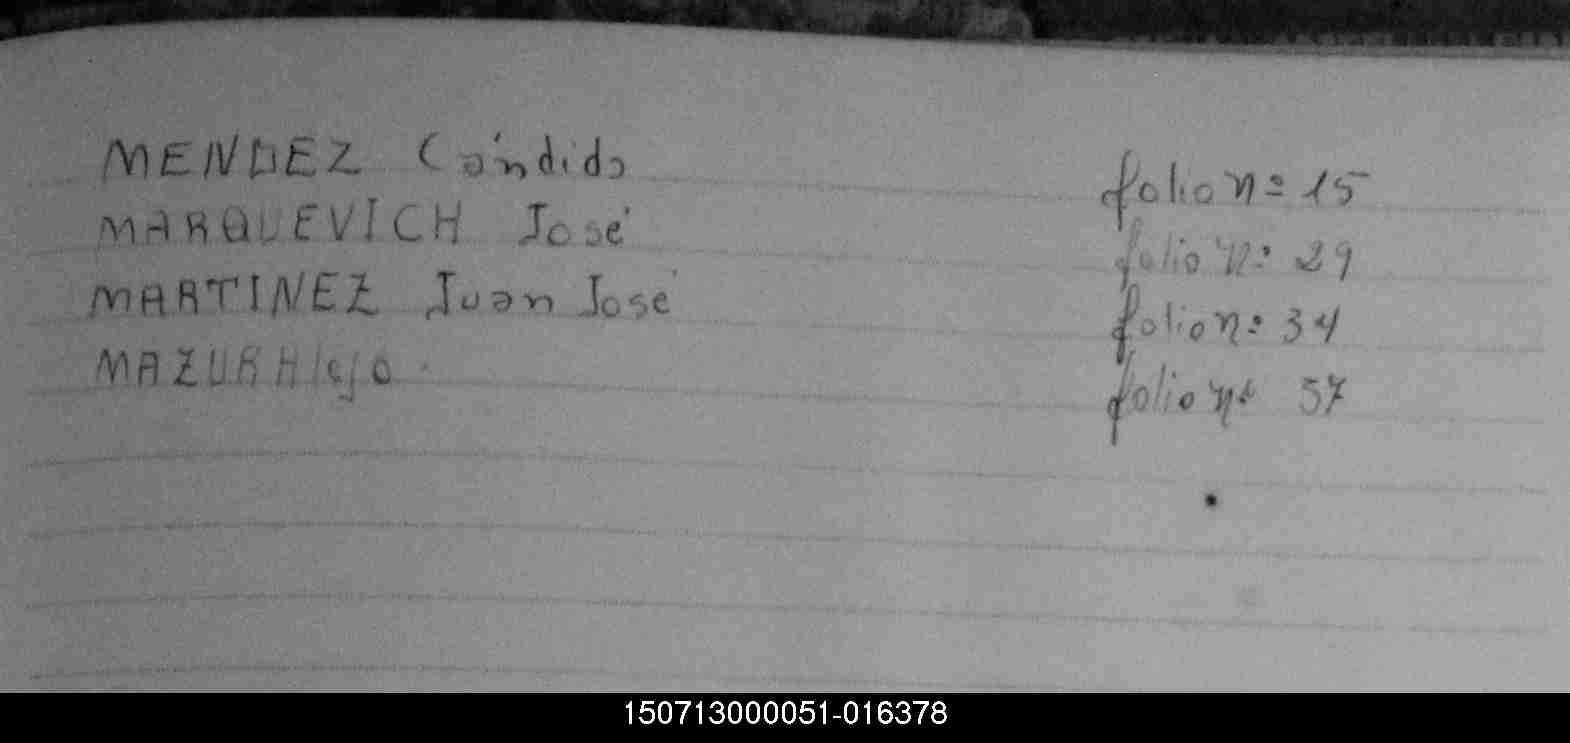 MENDEZ Cándido folio nº 15
MARQUEVICH José folio nº 29
MARTINEZ Juan José folio nº 34
MAZUR Alejo. folio nº 57
150713000051-016378